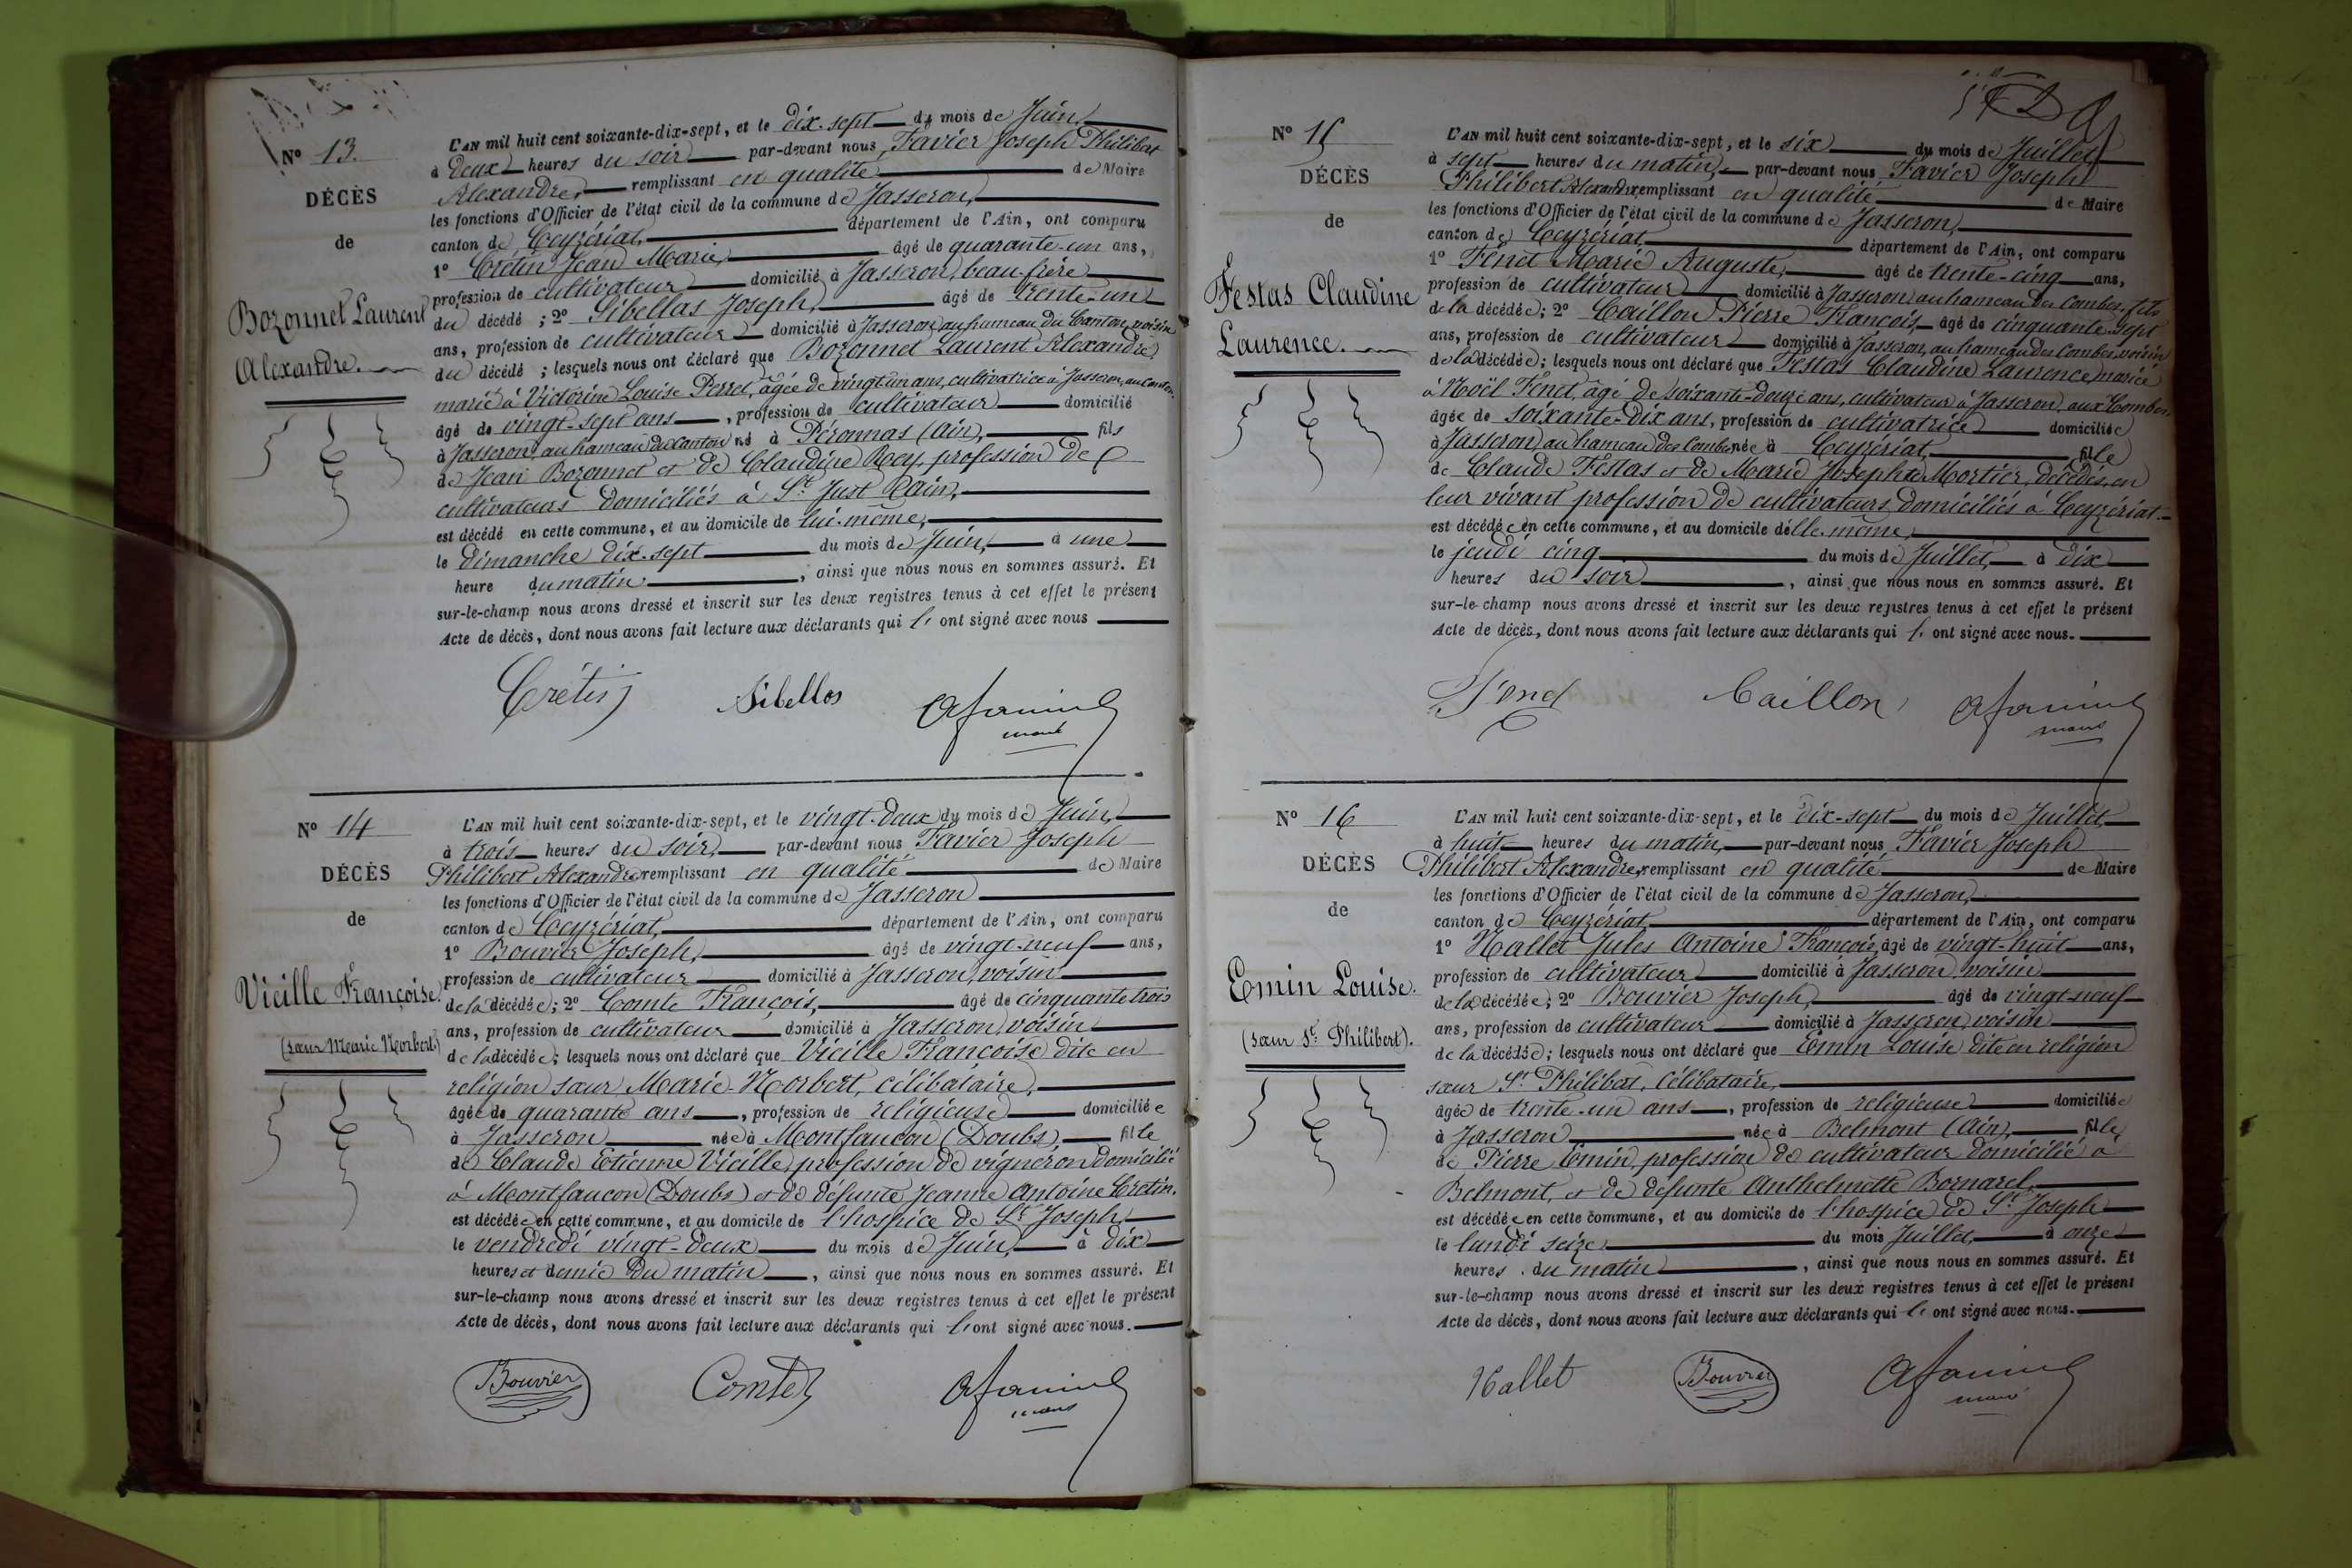 N° 13.
DÉCÈS
de
Bozonnet Laurent
Alexandre.
L'AN mil huit cent soixante-dix-sept, et le dix-sept du mois de Juin,
à deux heures du soir par-devant nous, Favier Joseph Philibert
Alexandre, remplissant en qualité de Maire
les fonctions d'Officier de l'état civil de la commune de Jasseron,
canton de Ceyzériat, département de l'Ain, ont comparu
1° Crétin Jean Marie, âgé de quarante-un ans,
profession de cultivateur domicilié à Jasseron, beau-frère
du décédé ; 2° Sibellas Joseph, âgé de trente-un
ans, profession de cultivateur domicilié à Jasseron, au hameau du Canton, voisin
du décédé ; lesquels nous ont déclaré que Bozonnet Laurent Alexandre
marié à Victorine Louise Perret, âgée de vingt un ans, cultivatrice à Jasseron, au Canton,
âgé de vingt-sept ans, profession de cultivateur domicilié
à Jasseron, au hameau du Canton né à Péronnas (Ain), fils
de Jean Bozonnet et de Claudine Rey, profession de
cultivateurs domiciliés à St Just (Ain),
est décédé en cette commune, et au domicile de lui-même,
le dimanche dix-sept du mois de Juin, à une
heure du matin, ainsi que nous nous en sommes assuré. Et
sur-le-champ nous avons dressé et inscrit sur les deux registres tenus à cet effet le présent
Acte de décès, dont nous avons fait lecture aux déclarants qui l' ont signé avec nous
Crétin Sibellas
maire
N° 14
DÉCÈS
de
Vieille Françoise.
(sœur Marie Norbert)
L'AN mil huit cent soixante-dix-sept, et le vingt-deux du mois de Juin,
à trois heures du soir, par-devant nous Favier Joseph
Philibert Alexandre, remplissant en qualité de Maire
les fonctions d'Officier de l'état civil de la commune de Jasseron
canton de Ceyzériat, département de l'Ain, ont comparu
1° Bouvier Joseph, âgé de vingt-neuf ans,
profession de cultivateur domicilié à Jasseron, voisin
de la décédée ; 2° Comte François, âgé de cinquante trois
ans, profession de cultivateur domicilié à Jasseron, voisin
de la décédée ; lesquels nous ont déclaré que Vieille Françoise dite en
religion sœur Marie-Norbert, célibataire,
âgée de quarante ans, profession de religieuse domiciliée
à Jasseron née à Montfaucon (Doubs), fille
de Claude Etienne Vieille, profession de vigneron domicilié
à Montfaucon (Doubs) et de défunte Jeanne Antoine Cretin.
est décédée en cette commune, et au domicile de l'hospice de St Joseph,
le vendredi vingt-deux du mois de Juin, à dix
heures et demie du matin, ainsi que nous nous en sommes assuré. Et
sur-le-champ nous avons dressé et inscrit sur les deux registres tenus à cet effet le présent
Acte de décès, dont nous avons fait lecture aux déclarants qui l' ont signé avec nous.
Bouvier Comte
maire
N° 15
DÉCÈS
de
Festas Claudine
Laurence.
L'AN mil huit cent soixante-dix-sept, et le six du mois de Juillet,
à sept heures du matin, par-devant nous Favier Joseph
Philibert Alexandre, remplissant en qualité de Maire
les fonctions d'Officier de l'état civil de la commune de Jasseron,
canton de Ceyzériat département de l'Ain, ont comparu
1° Fenet Marie Auguste, âgé de trente-cinq ans,
profession de cultivateur domicilié à Jasseron, au hameau des Combes, fils
de la décédée ; 2° Caillon Pierre François âgé de cinquante-sept
ans, profession de cultivateur domicilié à Jasseron, au hameau des Combes, voisin
de la décédée ; lesquels nous ont déclaré que Festas Claudine Laurence, mariée
à Noël Fenet, âgé de soixante-douze ans, cultivateur à Jasseron, aux Combes,
âgée de soixante-dix ans, profession de cultivatrice domiciliée
à Jasseron, au hameau des Combes née à Ceyzériat, fille
de Claude Festas et de Marie Josephte Mortier, décédés, en
leur vivant profession de cultivateurs domiciliés à Ceyzériat.
est décédée en cette commune, et au domicile d'elle-même,
le jeudi cinq du mois de Juillet, à dix
heures du soir, ainsi que nous nous en sommes assuré. Et
sur-le-champ nous avons dressé et inscrit sur les deux registres tenus à cet effet le présent
Acte de décès, dont nous avons fait lecture aux déclarants qui l' ont signé avec nous.
Fenet Caillon
maire
N° 16
DÉCÈS
de
Emin Louise.
(sœur St Philibert).
L'AN mil huit cent soixante-dix-sept, et le dix-sept du mois de Juillet,
à huit heures du matin, par-devant nous Favier Joseph
Philibert Alexandre, remplissant en qualité de Maire
les fonctions d'Officier de l'état civil de la commune de Jasseron,
canton de Ceyzériat département de l'Ain, ont comparu
1° Hallet Jules Antoine François, âgé de vingt-huit ans,
profession de cultivateur domicilié à Jasseron, voisin
de la décédée ; 2° Bouvier Joseph, âgé de vingt-neuf
ans, profession de cultivateur domicilié à Jasseron, voisin
de la décédée ; lesquels nous ont déclaré que Emin Louise dite en religion
sœur St Philibert, célibataire,
âgée de trente-un ans, profession de religieuse domiciliée
à Jasseron née à Belmont (Ain), fille
de Pierre Emin, profession de cultivateur domicilié à
Belmont, et de défunte Anthelmette Bornarel.
est décédée en cette commune, et au domicile de l'hospice de St Joseph
le lundi seize du mois Juillet, à onze
heures du matin, ainsi que nous nous en sommes assuré. Et
sur-le-champ nous avons dressé et inscrit sur les deux registres tenus à cet effet le présent
Acte de décès, dont nous avons fait lecture aux déclarants qui l' ont signé avec nous.
Hallet Bouvier
maire